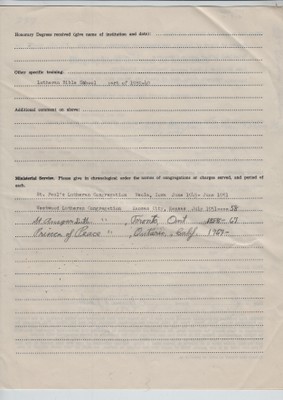 Honorary Degrees received (give name of institution and date):
Other specific training:
Lutheran Bible School part of
Additional comment on above:
Ministerial Service. Please give in chronological order the names of congregations or charges served, and period of
each.
St. Paul's Lutheran Congregation Iowa June 1949- June 1951
Westwood Lutheran Congregation Kansas City, Kansas July 1951---58
St. " , Toronto, Ont 1958-67
Prince of Peace " , Ontario, Calif. 1967-